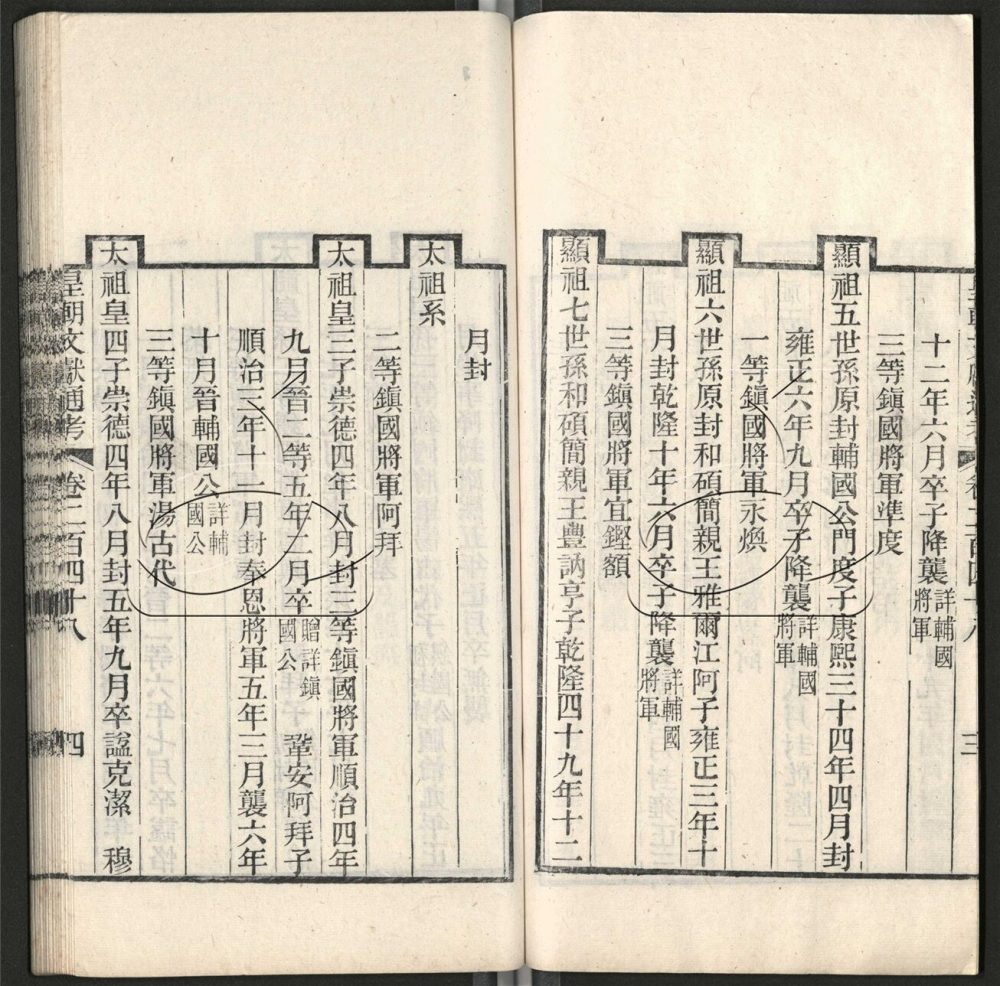 十二年六月卒子降襲詳輔國將軍
三等鎭國將軍準度
顯祖五世孫原封輔國公門度子康熙三十四年四月封
雍正六年九月卒子降襲詳輔國將軍
一等鎭國將軍永煥
顯祖六世孫原封和碩簡親王雅爾江阿子雍正三年十
月封乾隆十年六月卒子降襲詳輔國將軍
三等鎭國將軍宜鏗額
顯祖七世孫和碩簡親王豐訥亨子乾隆四十九年十二
月封
太祖系
二等鎭國將軍阿拜
太祖皇三子崇德四年八月封三等鎭國將軍順治四年
九月晉二等五年二月卒贈詳鎭國公 鞏安阿拜子
順治三年十一月封奉恩將軍五年三月襲六年
十月晉輔國公詳輔國公
三等鎭國將軍湯古代
太祖皇四子崇德四年八月封五年九月卒諡克潔 穆
皇朝文獻通考 卷二百四十八 四